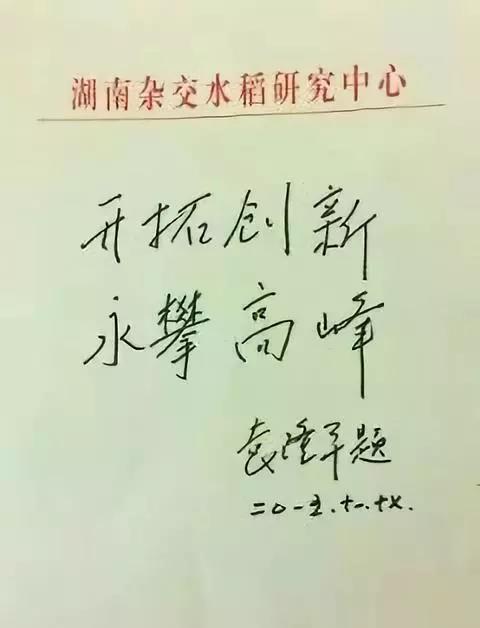 湖南杂交水稻研究中心
开拓创新
永攀高峰
袁隆平题
二〇一五.十一.十六.